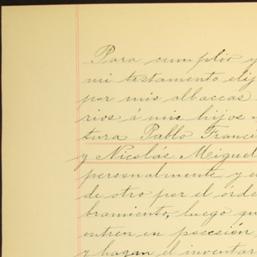 Para cumplir y
mi testamento elij
por mis albaceas
rios á mis hijos
tura Pablo Franc
y Nicolás Miguel
personalmente y
de otro por el órde
bramiento, luego qu
entren en posesión
y hagan el inventar